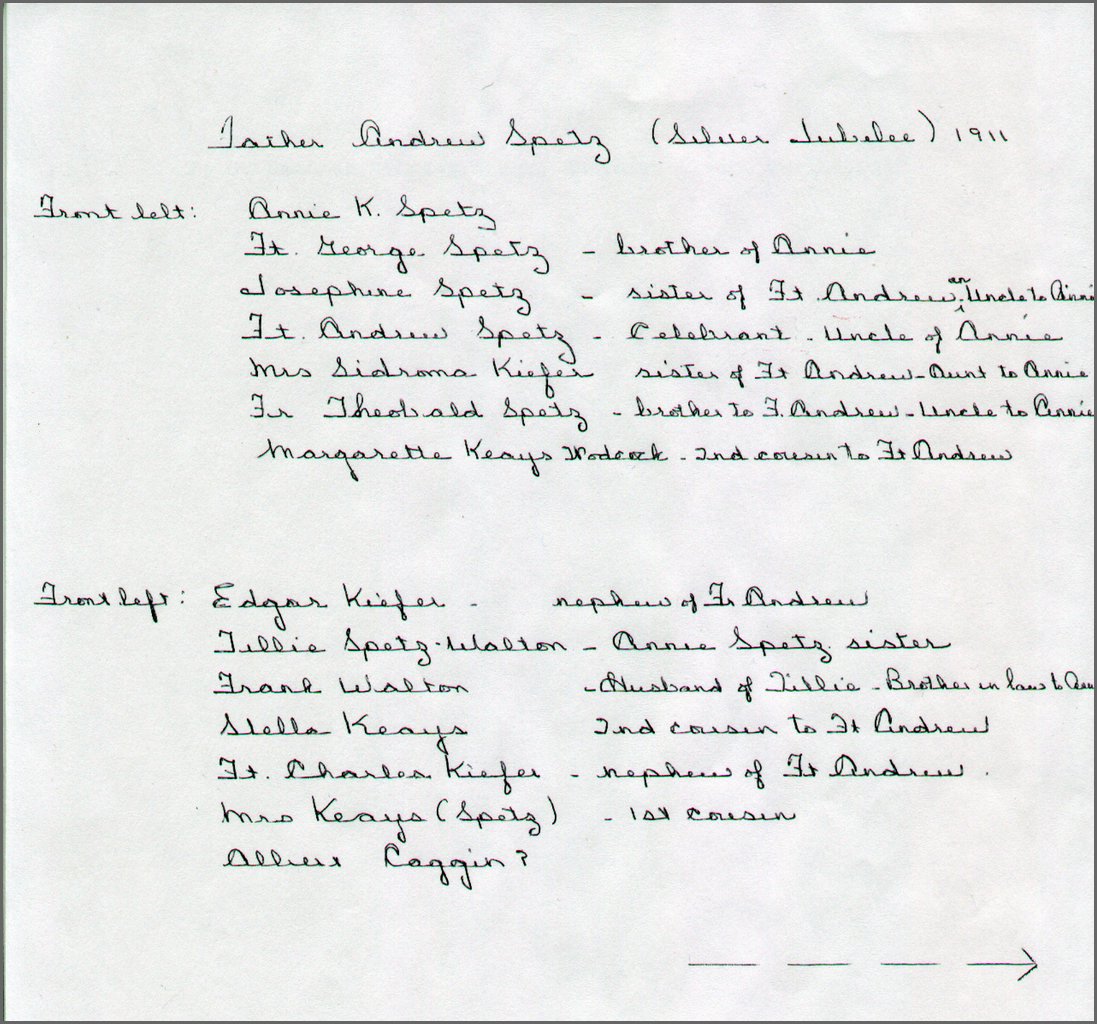 Father Andrew Spetz (Silver Jubelee) 1911
Front left: Annie K. Spetz
Ft. George Spetz - brother of Annie
Josephine Spetz - sister of Ft. Andrew, an Uncle to Anni
Ft. Andrew Spetz - Celebrant - Uncle of Annie
Mrs Sidroma Kiefer sister of Ft Andrew - Aunt to Annie
Fr Theobald Spetz - brother to F. Andrew - Uncle to Annie
Margarette Keays Wodcock - 2nd cousin to Ft Andrew
Front left: Edgar Kiefer - nephew of Fr Andrew
Tillie Spetz-Walton - Annie Spetz sister
Frank Walton - Husband of Tillie - Brother in law to Ann
Stella Keays 2nd cousin to Ft Andrew
Ft. Charles Kiefer - nephew of Ft Andrew.
Mrs Keays (Spetz) - 1st cousin
Albert Goggin?